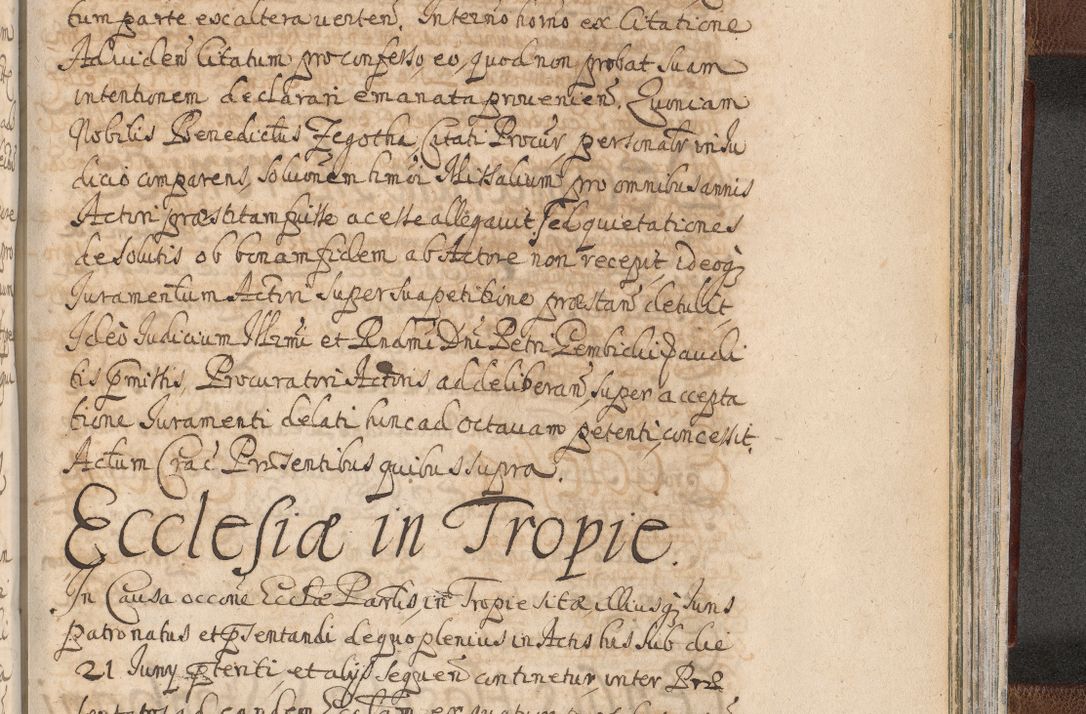 tum parte ex altera verten̄. In termino horno ex Citatione
Ad viden̄ Citatum pro confesso, eo, quod non probat suam
intentionem declarari emanata provenien̄. Quoniam
Nobilis Benedictus Zegotha Citati Procur̄ personalr̄ in Iu
dicio comparens, solu͠onem hmōi Missalium pro omnibus annis
Actori præstitam fuisse ac esse allegavit sed quietationes
de solutis ob bonam fidem ab Actore non recepit, ideoq̨
Iuramentum Actori super sua petitione præstan̄ detulit,
Ideo Iudicium Illrmi et Rndmi Dni Petri Gembicki, audi
tis p̄missis, Procuratori Actoris ad deliberan̄ super accepta
tione Iuramenti delati hinc ad octavam petenti, concessit.
Actum Crac̄ Pr̄sentibus quibus supra.
Ecclesiæ in Tropie.
In Causa occōne Ecclæ Parlis in Tropie sitæ illiusq̨ Iuris
patronatus et p̄sentandi de quo plenius in Actis his sub die
21 Iunij p̄teriti, et alijs sequen̄ continetur, inter Præ